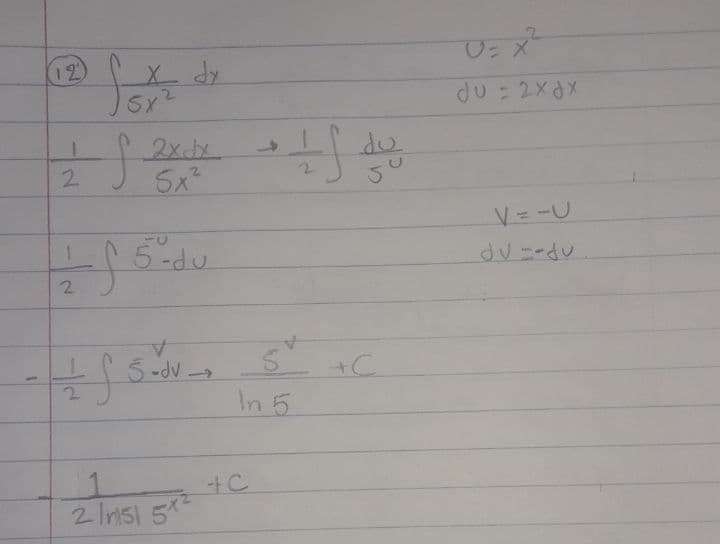 (12) ∫ x/5x² dx    U = x²
du = 2xdx
1/2 ∫ 2xdx/5x² → 1/2 ∫ du/5^U
V = -U
1/2 ∫ 5^-U -du    dV = -du
-1/2 ∫ 5^V -dv → 5^V/ln 5 + C
-1/(2 ln|5| 5^x²) + C